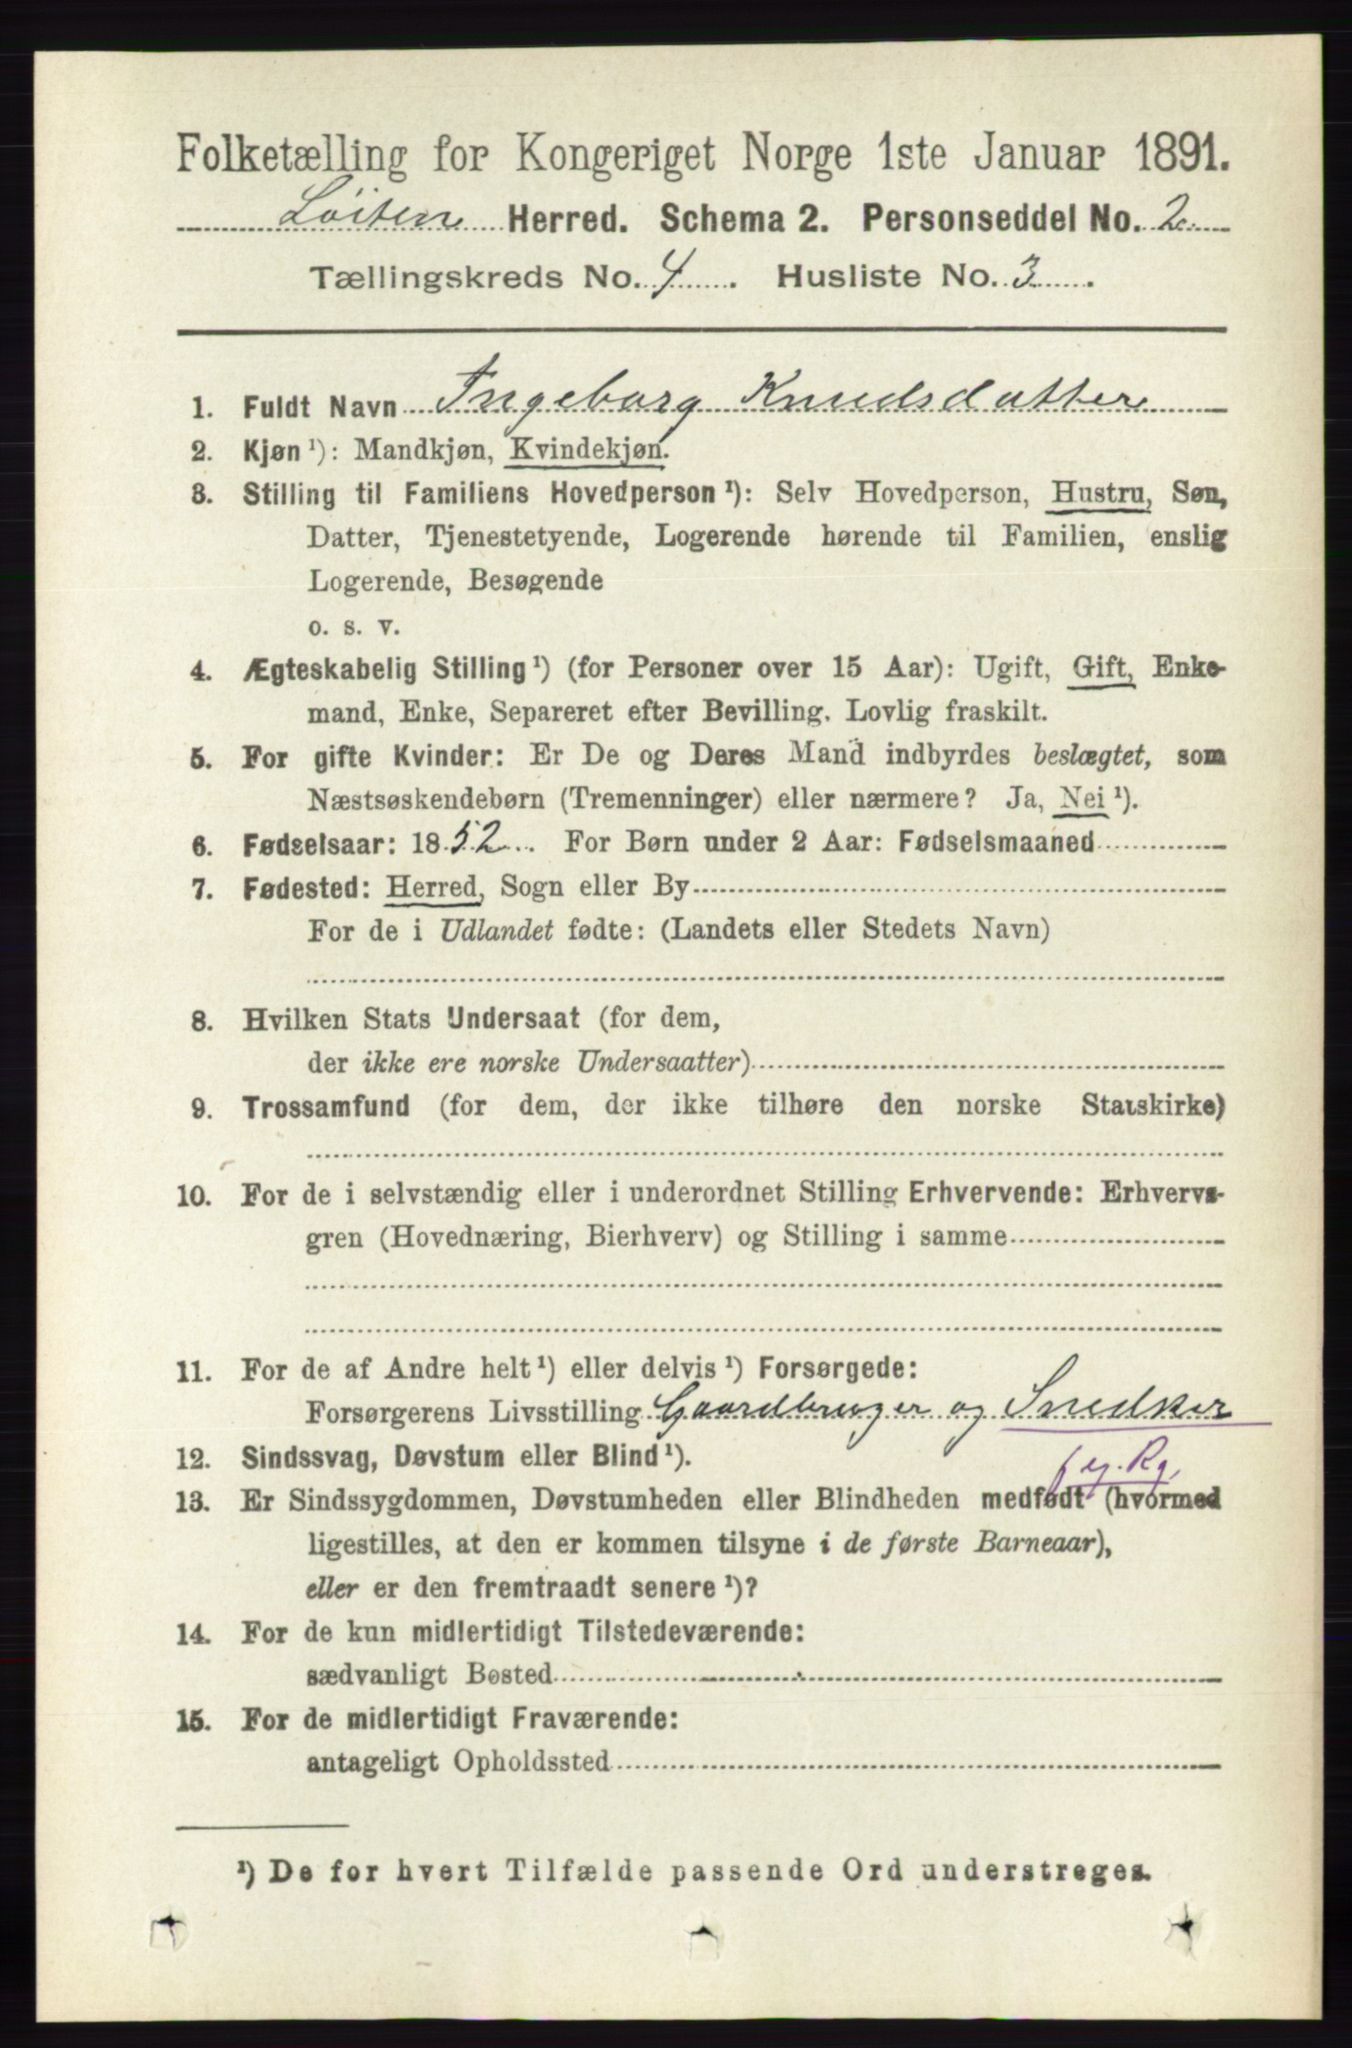 Folketælling for Kongeriget Norge 1ste Januar 1891.
Löiten Herred. Schema 2. Personseddel No. 2
Tællingskreds No. 4. Husliste No. 3.
1. Fuldt Navn Ingeborg Knudsdatter
2. Kjøn¹): Mandkjøn, Kvindekjøn.
3. Stilling til Familiens Hovedperson¹): Selv Hovedperson, Hustru, Søn,
Datter, Tjenestetyende, Logerende hørende til Familien, enslig
Logerende, Besøgende
o. s. v.
4. Ægteskabelig Stilling¹) (for Personer over 15 Aar): Ugift, Gift, Enke-
mand, Enke, Separeret efter Bevilling. Lovlig fraskilt.
5. For gifte Kvinder: Er De og Deres Mand indbyrdes beslægtet, som
Næstsøskendebørn (Tremenninger) eller nærmere? Ja, Nei¹).
6. Fødselsaar: 1852. For Børn under 2 Aar: Fødselsmaaned
7. Fødested: Herred, Sogn eller By
For de i Udlandet fødte: (Landets eller Stedets Navn)
8. Hvilken Stats Undersaat (for dem,
der ikke ere norske Undersaatter)
9. Trossamfund (for dem, der ikke tilhøre den norske Statskirke)
10. For de i selvstændig eller i underordnet Stilling Erhvervende: Erhvervs-
gren (Hovednæring, Bierhverv) og Stilling i samme
11. For de af Andre helt¹) eller delvis¹) Forsørgede:
Forsørgerens Livsstilling Gaardbruger og Snedker
f eg. Rg.
12. Sindssvag, Døvstum eller Blind¹).
13. Er Sindssygdommen, Døvstumheden eller Blindheden medfødt (hvormed
ligestilles, at den er kommen tilsyne i de første Barneaar),
eller er den fremtraadt senere¹)?
14. For de kun midlertidigt Tilstedeværende:
sædvanligt Bosted
15. For de midlertidigt Fraværende:
antageligt Opholdssted
¹) De for hvert Tilfælde passende Ord understreges.